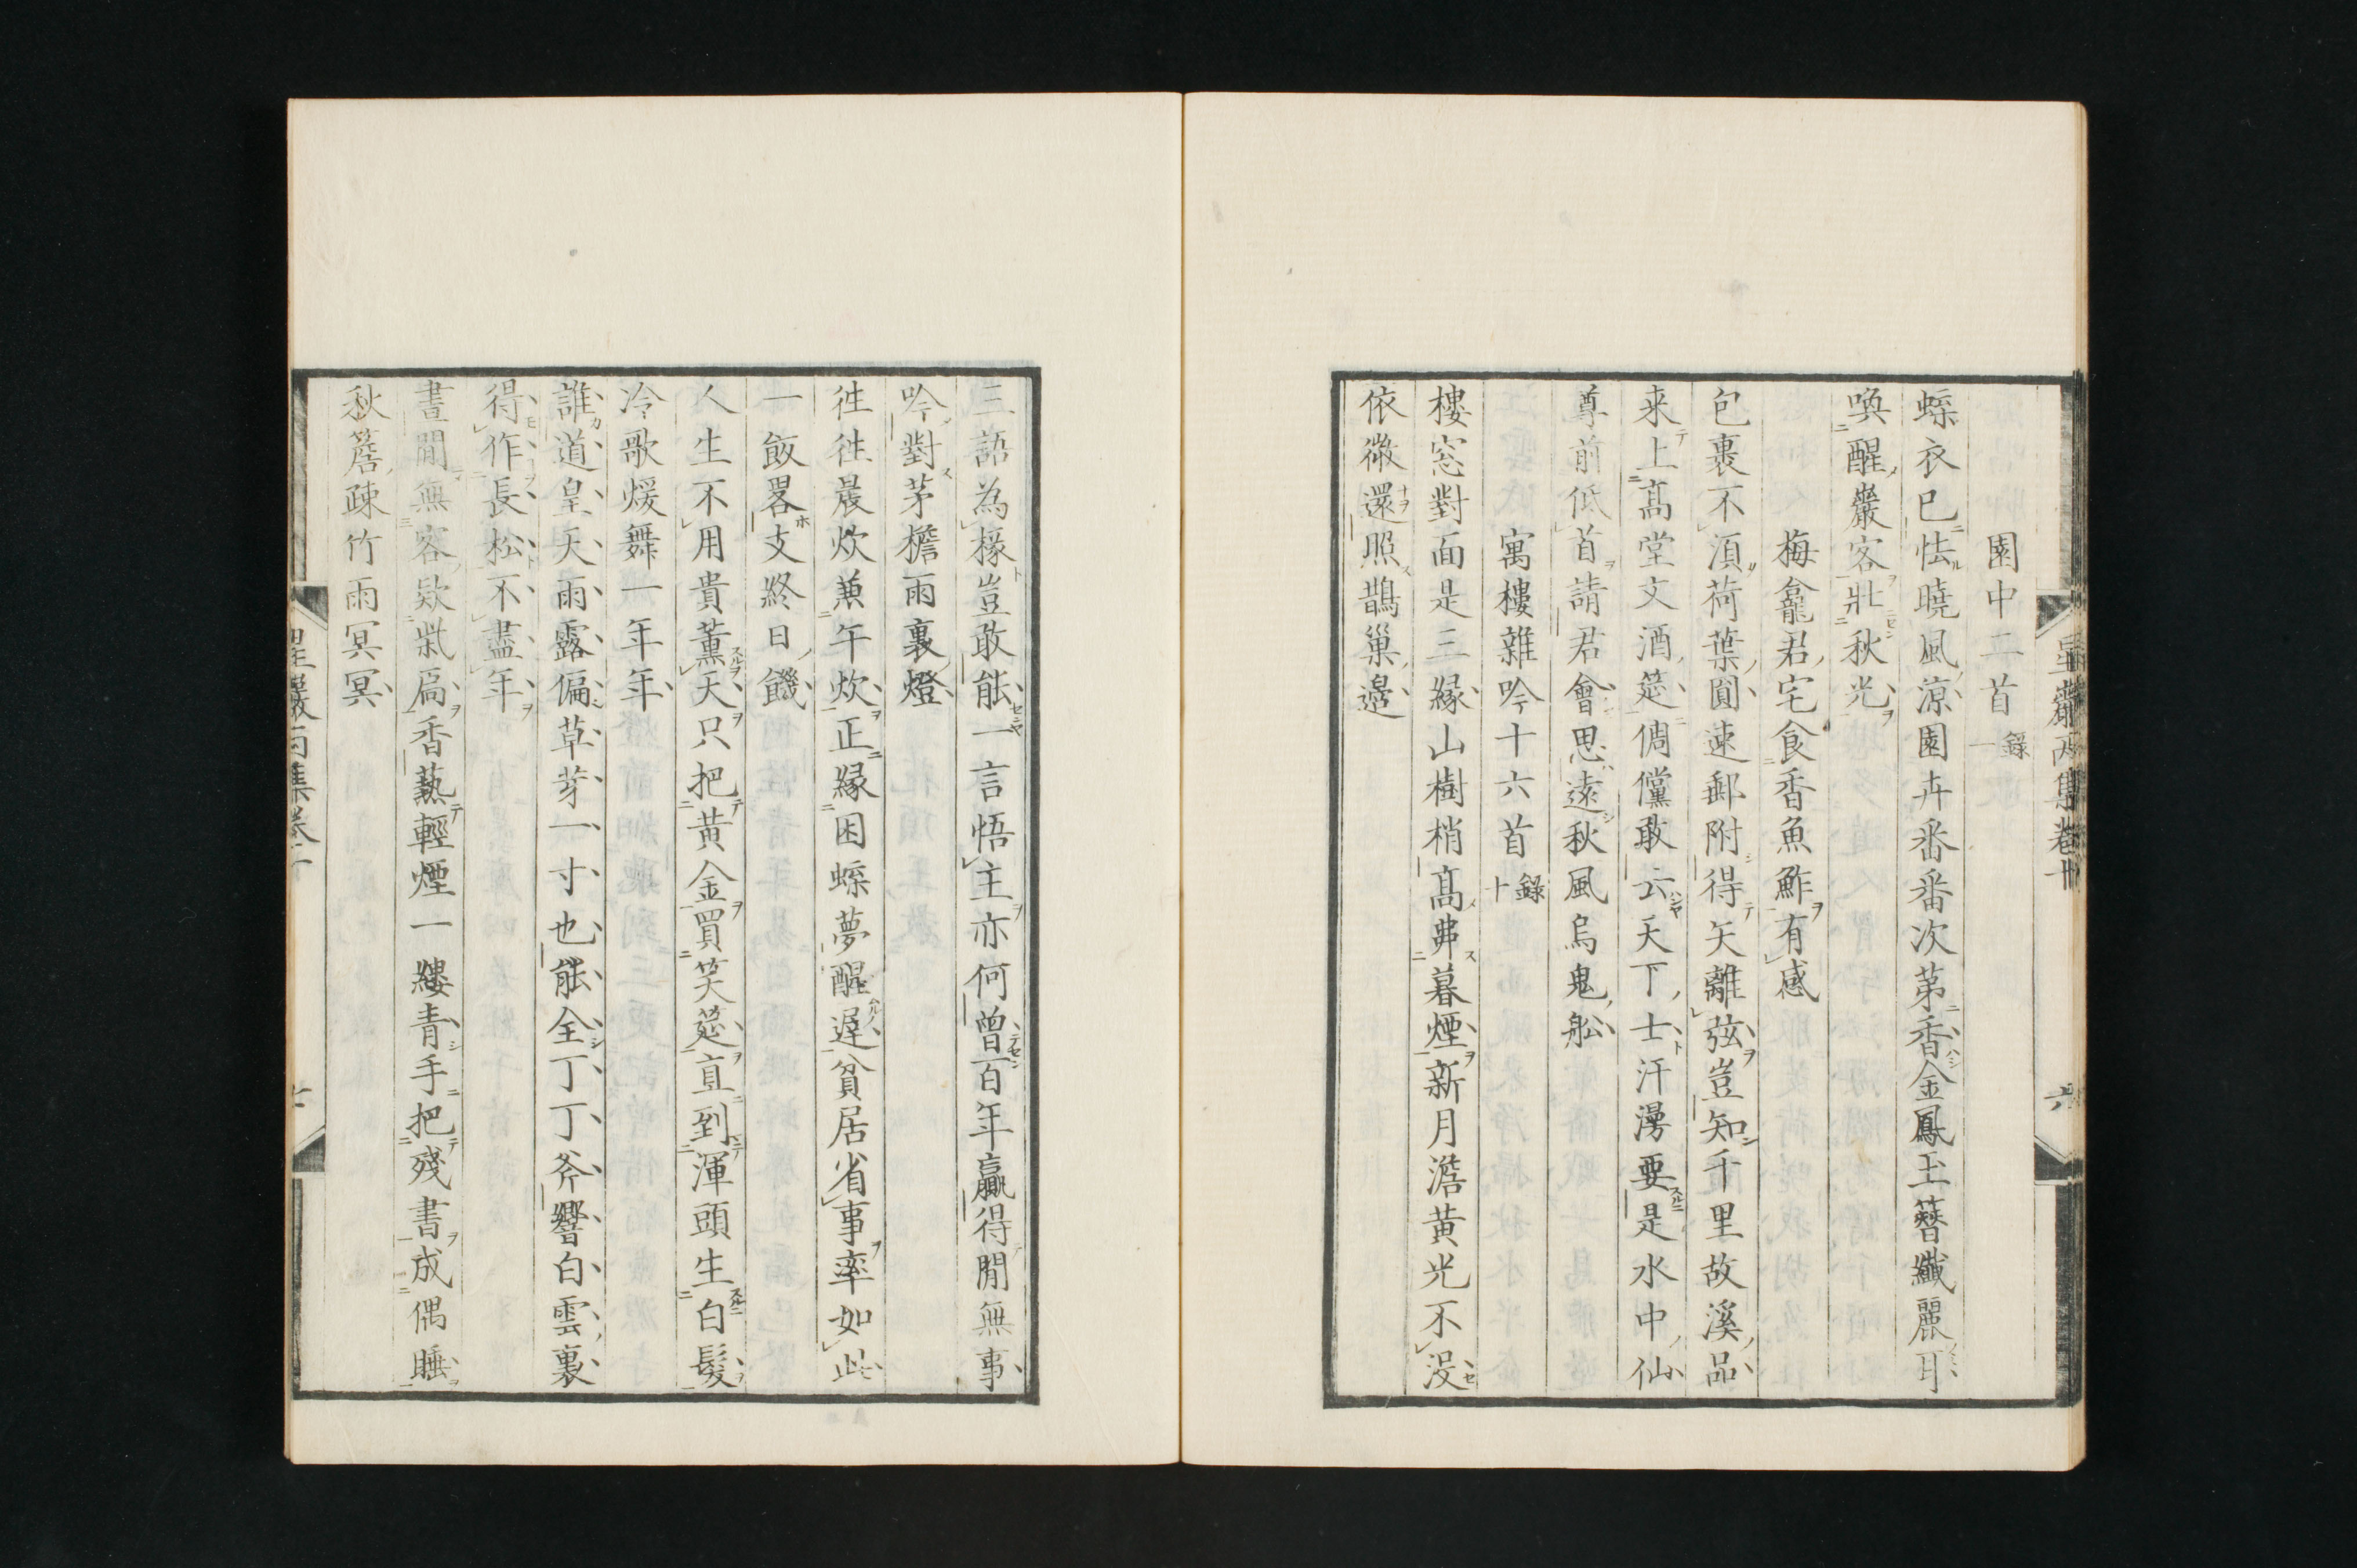 園中二首錄一
蝶衣已怯曉風涼園卉番番次第香金鳳玉簪纖麗耳
喚醒巖客壯秋光
梅龕君宅食香魚鮓有感
包裹不須荷葉圓速郵附得矢離弦豈知千里故溪品
来上髙堂文酒筵倜儻敢云天下士汗漫要是水中仙
尊前低首請君會思遠秋風烏鬼舩
寓樓雜吟十六首錄十
樓窓對面是三緣山樹梢髙弗暮煙新月澹黄光不沒
依微還照鵲巢邉
三語為掾豈敢能一言悟主亦何曽百年贏得閒無事
吟對茅檐雨裏燈
徃徃晨炊兼午炊正縁困蝶夢醒遲貧居省事率如此
一飯畧支終日饑
人生不用貴薫天只把黄金買笑筵直到渾頭生白髪
冷歌煖舞一年年
誰道皇天雨露偏草芽一寸也能全丁丁斧響白雲裏
得作長松不盡年
晝閒無客欵柴扃香爇輕煙一縷青手把殘書成偶睡
秋簷疎竹雨冥冥